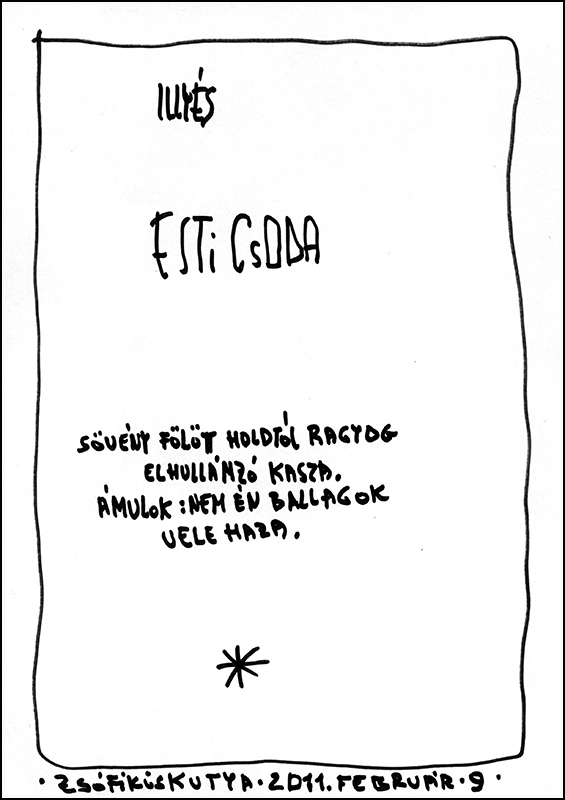 ILLYÉS
ESTI CSODA
SÖVÉNY FÖLÖTT HOLDTÓL RAGYOG
ELHULLÁNZÓ KASZA.
ÁMULOK: NEM ÉN BALLAGOK
VELE HAZA.
·ZSÓFIKISKUTYA·2011.FEBRUÁR·9·